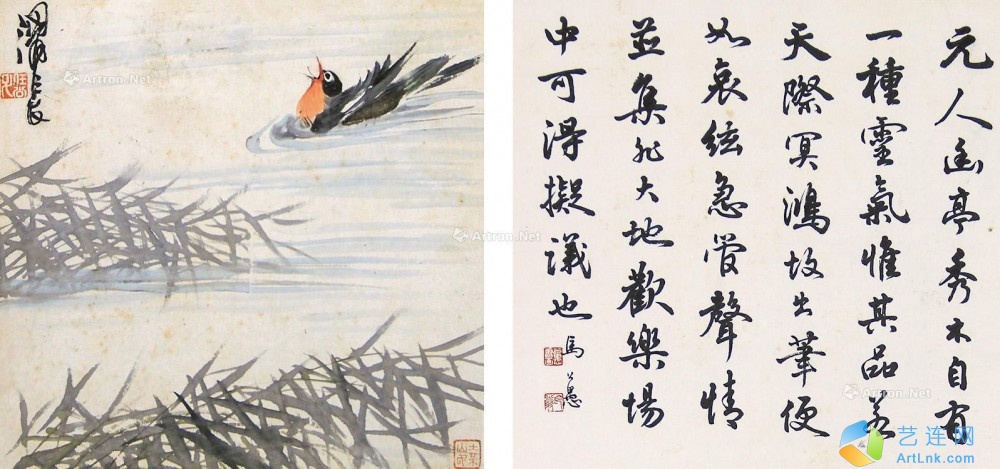 元人幽亭秀木自有
一種靈氣惟其品若
天際冥鴻故出筆便
如哀絃急管聲情
並集非大地歡樂場
中可得擬議也
馬公愚
Artron.Net
Artron.Net
Artron.Net
Artron.Net
Artron.Net
艺连网
ArtLnk.com